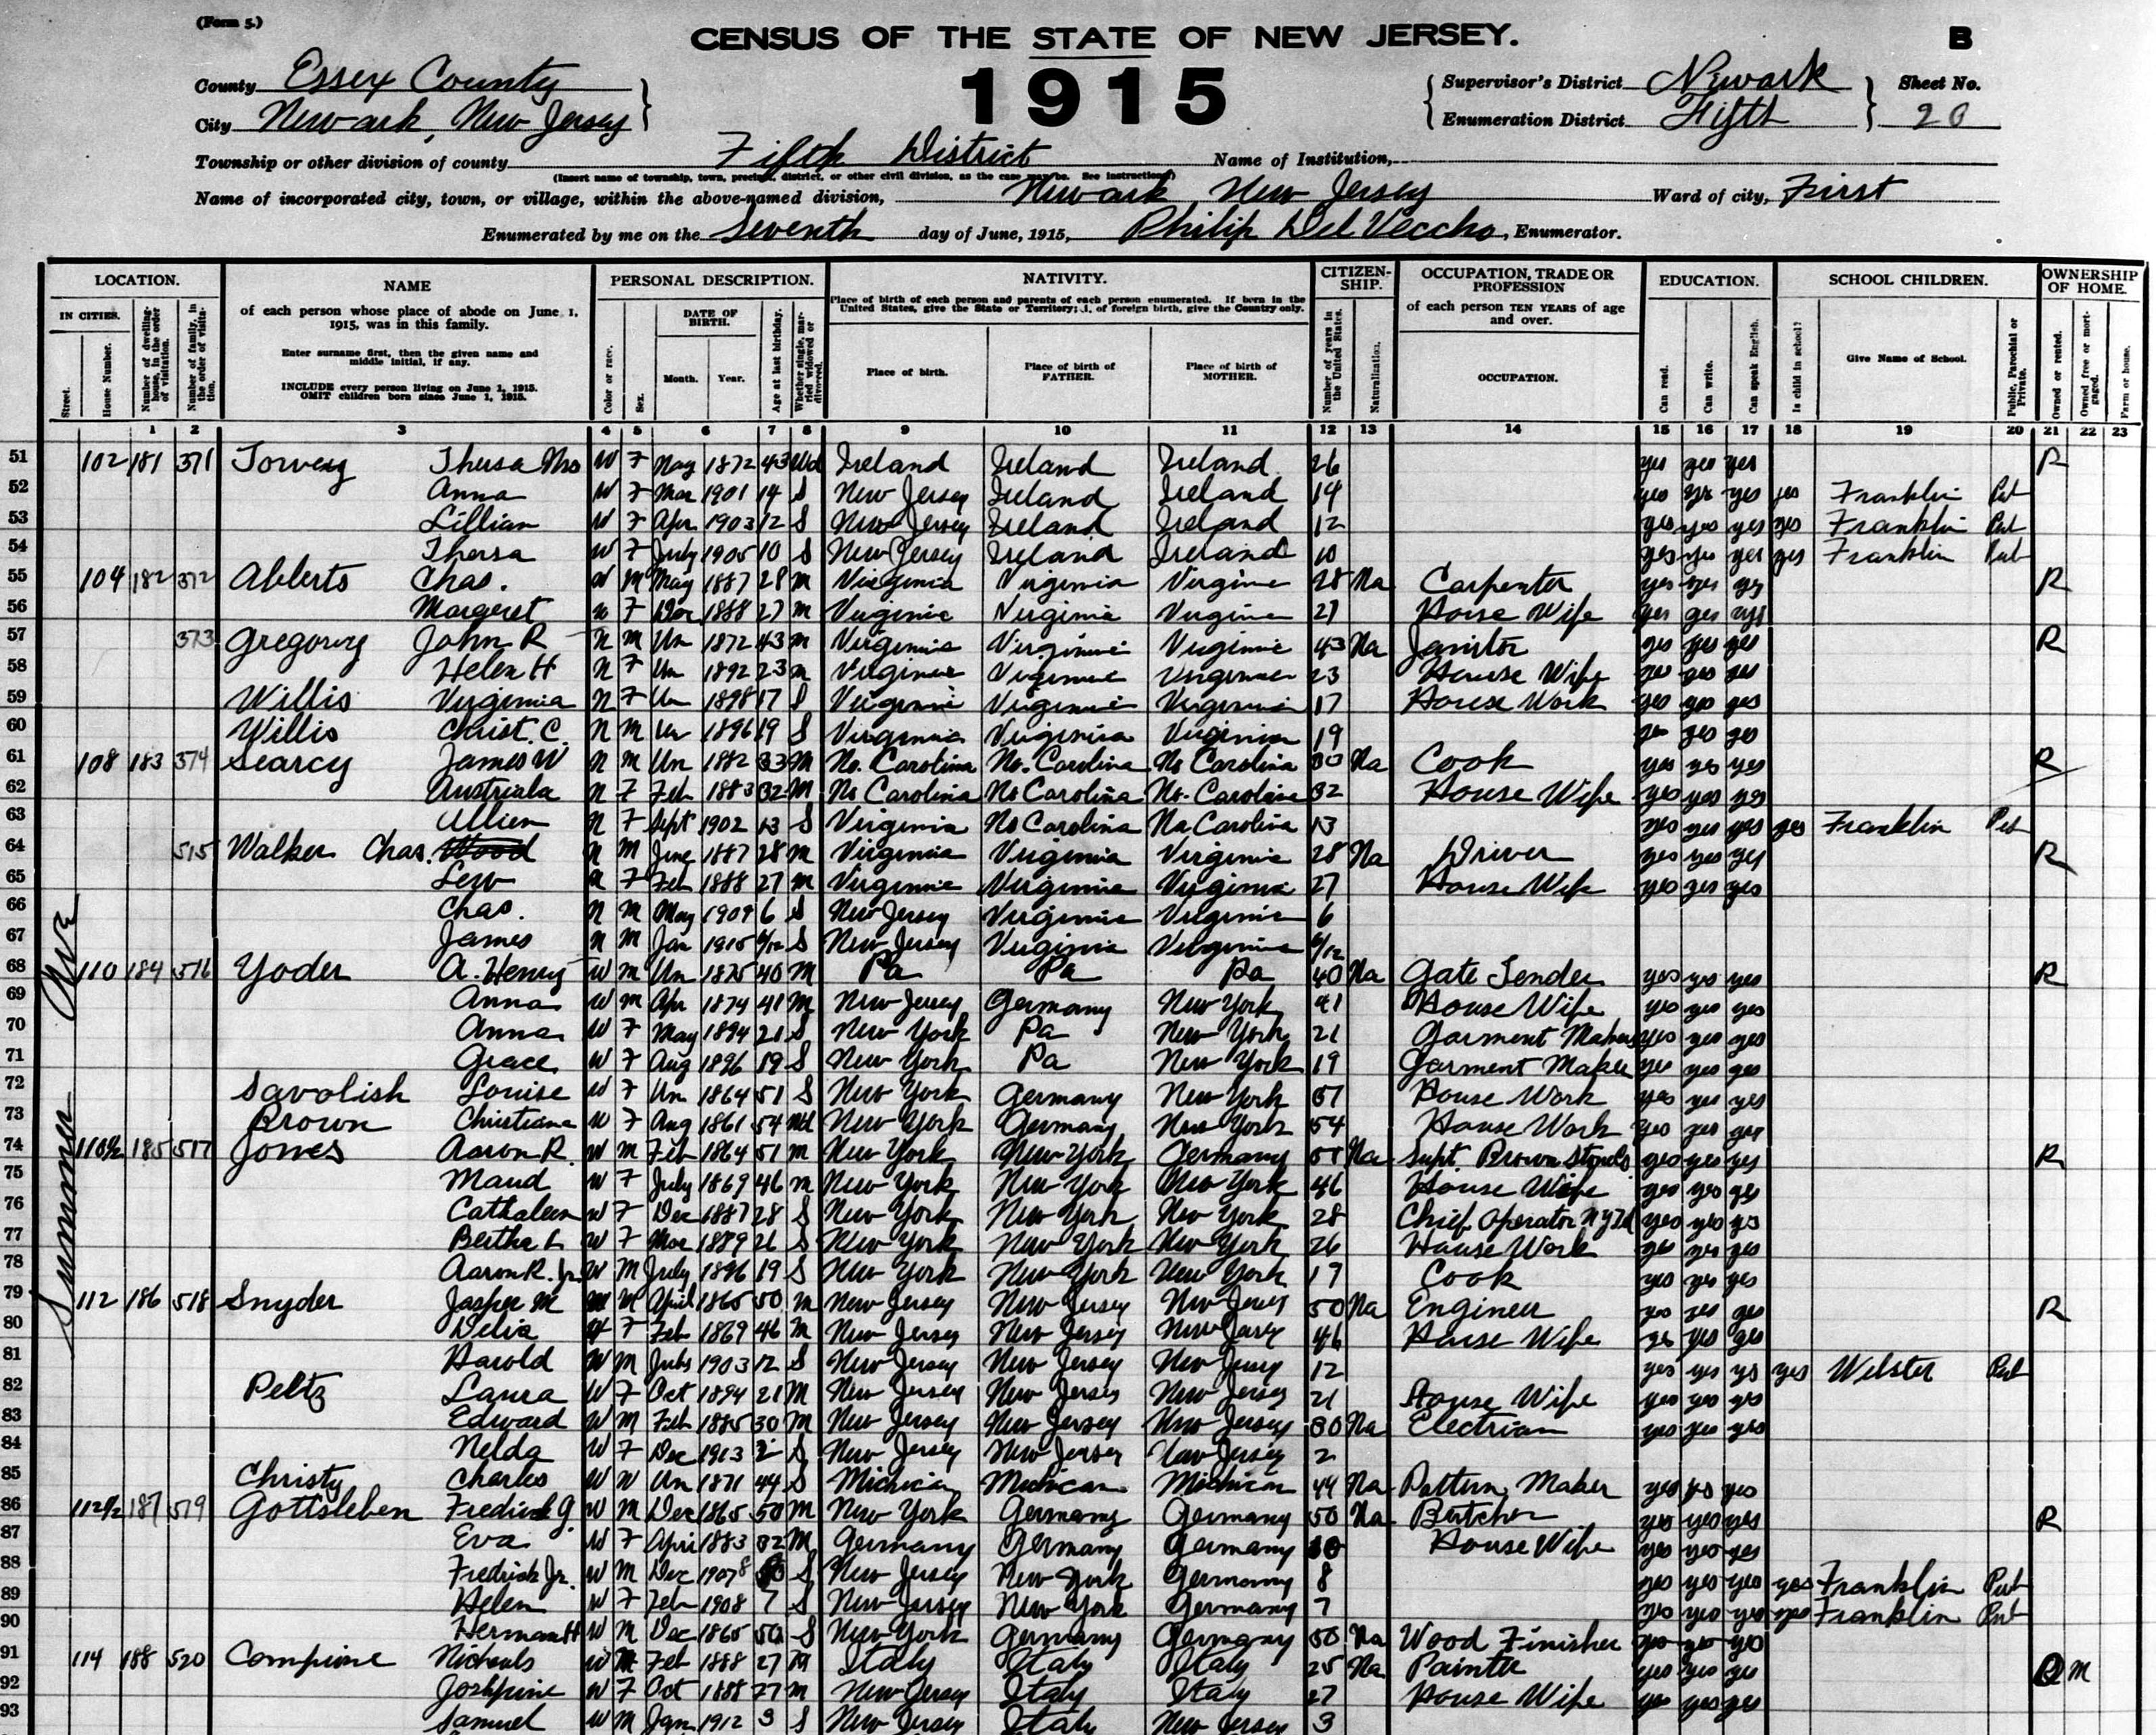 (Form 5.)
CENSUS OF THE STATE OF NEW JERSEY. B
1915
County Essex County
City Newark, New Jersey
Supervisor's District Newark Sheet No.
Enumeration District Fifth 20
Township or other division of county Fifth District Name of Institution,
(Insert name of township, town, precinct, district, or other civil division, as the case may be. See instructions)
Name of incorporated city, town, or village, within the above-named division, Newark New Jersey Ward of city, First
Enumerated by me on the Seventh day of June, 1915, Philip Del Veccho, Enumerator.
LOCATION. NAME PERSONAL DESCRIPTION. NATIVITY. CITIZEN-SHIP. OCCUPATION, TRADE OR PROFESSION EDUCATION. SCHOOL CHILDREN. OWNERSHIP OF HOME.
IN CITIES. Street. House Number. Number of dwelling-house, in the order of visitation. Number of family, in the order of visitation.
of each person whose place of abode on June 1, 1915, was in this family.
Enter surname first, then the given name and middle initial, if any.
INCLUDE every person living on June 1, 1915.
OMIT children born since June 1, 1915.
Color or race. Sex. DATE OF BIRTH. Month. Year. Age at last birthday. Whether single, married widowed or divorced.
Place of birth of each person and parents of each person enumerated. If born in the United States, give the State or Territory; if of foreign birth, give the Country only.
Place of birth. Place of birth of FATHER. Place of birth of MOTHER.
Number of years in the United States. Naturalization.
of each person TEN YEARS of age and over. OCCUPATION.
Can read. Can write. Can speak English. Is child in school? Give Name of School. Public, Parochial or Private. Owned or rented. Owned free or mortgaged. Farm or house.
1 2 3 4 5 6 7 8 9 10 11 12 13 14 15 16 17 18 19 20 21 22 23
Summer Ave
51 102 181 371 Thersa Mrs W F May 1872 43 Wd Ireland Ireland Ireland 26 yes yes yes R
52 Anna W F Mar 1901 14 S New Jersey Ireland Ireland 14 yes yes yes yes Franklin Pub
53 Lillian W F Apr 1903 12 S New Jersey Ireland Ireland 12 yes yes yes yes Franklin Pub
54 Thersa W F July 1905 10 S New Jersey Ireland Ireland 10 yes yes yes yes Franklin Pub
55 104 182 372 Alberts Chas. W M May 1887 28 M Virginia Virginia Virginia 28 Na Carpenter yes yes yes R
56 Margaret W F Dec 1888 27 M Virginia Virginia Virginia 27 House Wife yes yes yes
57 373 Gregory John R N M Un 1872 43 M Virginia Virginia Virginia 43 Na Janitor yes yes yes R
58 Helen H N F Un 1892 23 M Virginia Virginia Virginia 23 House Wife yes yes yes
59 Willis Virginia N F Un 1898 17 S Virginia Virginia Virginia 17 House Work yes yes yes
60 Willis Christ. C. N M Un 1896 19 S Virginia Virginia Virginia 19 yes yes yes
61 108 183 374 Searcy James W N M Un 1882 33 M No. Carolina No. Carolina No Carolina 33 Na Cook yes yes yes R
62 Austriala N F Feb 1883 32 M No Carolina No Carolina No. Carolina 32 House Wife yes yes yes
63 N F Sept 1902 13 S Virginia No Carolina No Carolina 13 yes yes yes yes Franklin Pub
64 515 Walker Chas. Wood N M June 1887 28 M Virginia Virginia Virginia 28 Na Driver yes yes yes R
65 N F Feb 1888 27 M Virginia Virginia Virginia 27 House Wife yes yes yes
66 Chas. N M May 1909 6 S New Jersey Virginia Virginia 6
67 James N M Jan 1915 6/12 S New Jersey Virginia Virginia 6/12
68 110 184 516 Yoder A. Henry W M Un 1875 40 M Pa Pa Pa 40 Na Gate Tender yes yes yes R
69 Anna W M Apr 1874 41 M New Jersey Germany New York 41 House Wife yes yes yes
70 Anna W F May 1894 21 S New York Pa New York 21 Garment Maker yes yes yes
71 Grace W F Aug 1896 19 S New York Pa New York 19 Garment Maker yes yes yes
72 Savolish Louise W F Un 1864 51 S New York Germany New York 51 House Work yes yes yes
73 Brown Christiana W F Aug 1861 54 Wd New York Germany New York 54 House Work yes yes yes
74 110½ 185 517 Jones Aaron R. W M Feb 1864 51 M New York New York Germany 51 Na Supt. Brown yes yes yes R
75 Maud W F July 1869 46 M New York New York New York 46 House Wife yes yes yes
76 Cathaleen W F Dec 1887 28 S New York New York New York 28 Chief Operator yes yes yes
77 Bertha L W F Mar 1889 26 S New York New York New York 26 House Work yes yes yes
78 Aaron R. Jr. W M July 1896 19 S New York New York New York 19 Cook yes yes yes
79 112 186 518 Snyder Jasper M W M April 1865 50 M New Jersey New Jersey New Jersey 50 Na Engineer yes yes yes R
80 Delia W F Feb 1869 46 M New Jersey New Jersey New Jersey 46 House Wife yes yes yes
81 Harold W M 1903 12 S New Jersey New Jersey New Jersey 12 yes yes yes yes Webster Pub
82 Peltz Laura W F Oct 1894 21 M New Jersey New Jersey New Jersey 21 House Wife yes yes yes
83 Edward W M Feb 1885 30 M New Jersey New Jersey New Jersey 30 Na Electrian yes yes yes
84 Nelda W F Dec 1913 2 S New Jersey New Jersey New Jersey 2
85 Christy Charles W W Un 1871 44 S Michican Michican Michican 44 Na Pattern Maker yes yes yes
86 112½ 187 519 Gottsleben Fredrick J. W M Dec 1865 50 M New York Germany Germany 50 Na Butcher yes yes yes R
87 Eva W F April 1883 32 M Germany Germany Germany House Wife yes yes yes
88 Fredrick Jr. W M Dec 1907 8 S New Jersey New York Germany 8 yes yes yes yes Franklin Pub
89 Helen W F Feb 1908 7 S New Jersey New York Germany 7 yes yes yes yes Franklin Pub
90 Herman H W M Dec 1865 50 S New York Germany Germany 50 Na Wood Finisher yes yes yes
91 114 188 520 Compione Nichols W M Feb 1888 27 M Italy Italy Italy 25 Na Painter yes yes yes M
92 Josephine W F Oct 1888 27 M New Jersey Italy Italy 27 House Wife yes yes yes
93 Samuel W M Jan 1912 3 S New Jersey Italy New Jersey 3